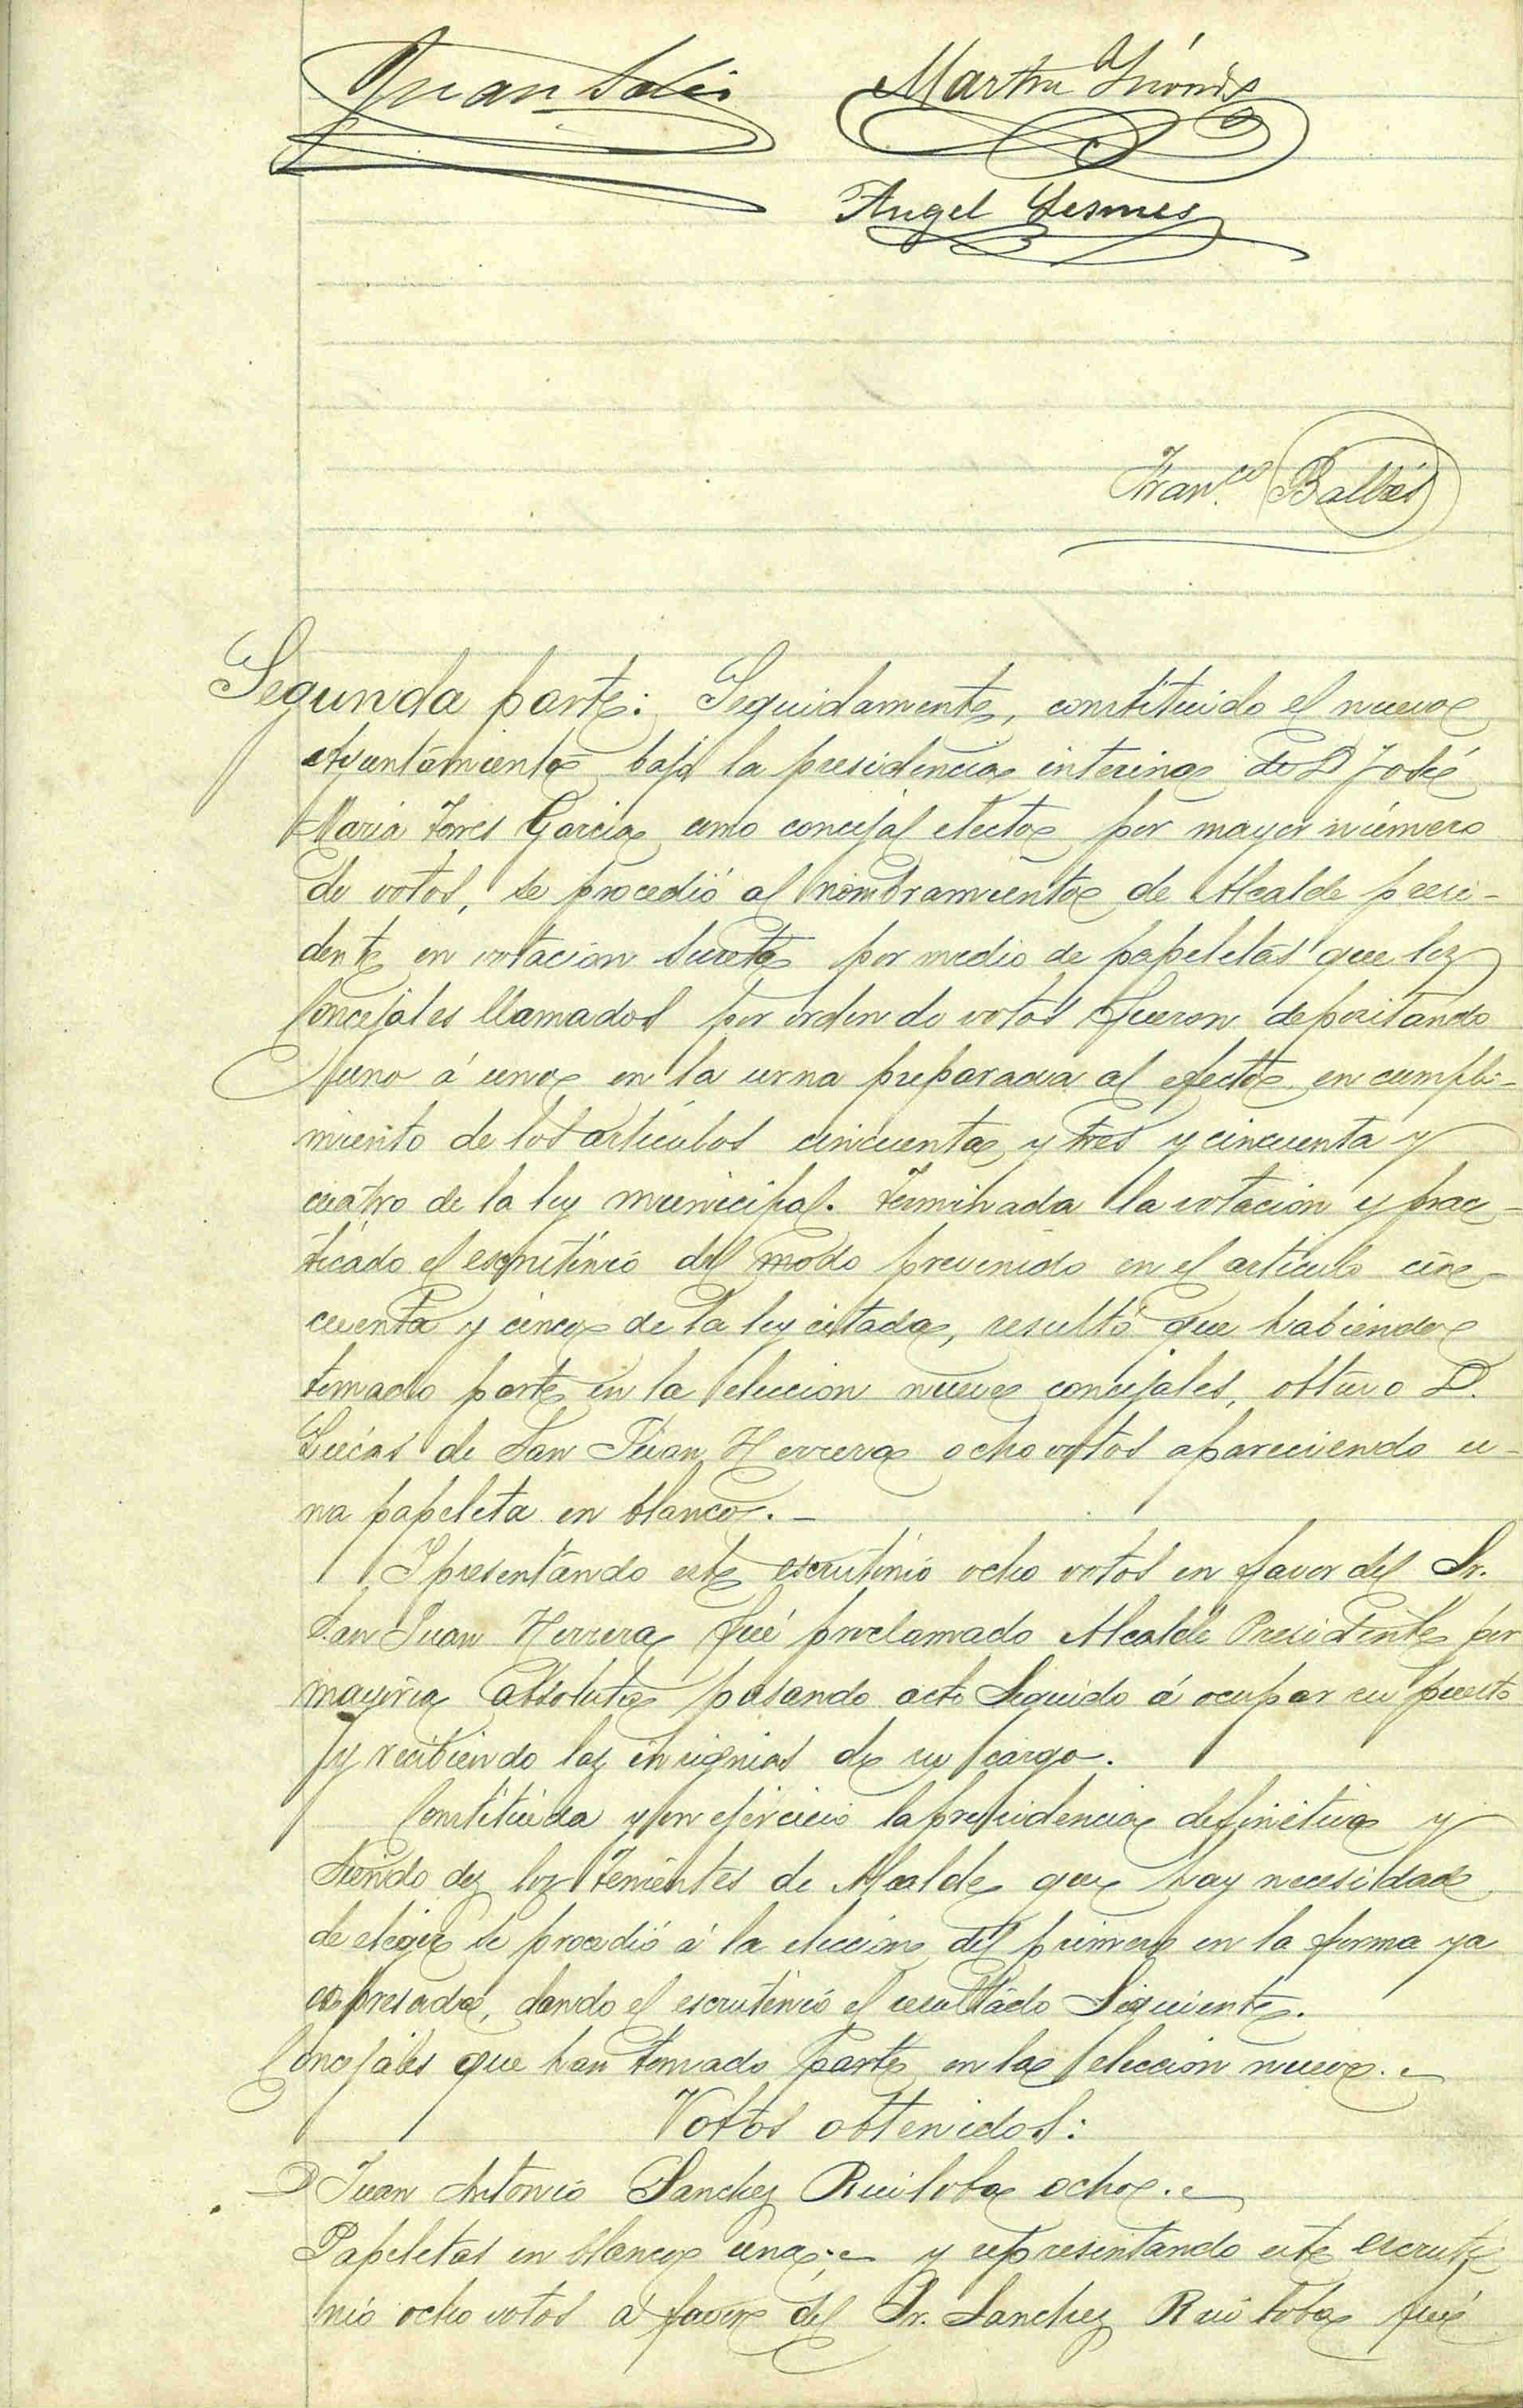 Juan Solis Martin
Angel Lesmes
Fran.co Balbás
Segunda parte: Seguidamente, constituido el nuevo
Ayuntamiento bajo la presidencia interina de D José
Maria Torres Garcia como concejal electo por mayor número
de votos, se procedió al nombramiento de Alcalde presi-
dente en votación secreta por medio de papeletas que los
Concejales llamados por orden de votos fueron depositando
uno á uno en la urna preparada al efecto en cumpli-
miento de los artículos cincuenta y tres y cincuenta y
cuatro de la ley municipal. Terminada la votación y prac-
ticado el escrutinio del modo prevenido en el artículo cin-
cuenta y cinco de la ley citada, resultó que habiendo
tomado parte en la elección nueve concejales, obtuvo D.
Lucas de San Juan Herrera ocho votos apareciendo u-
na papeleta en blanco.-
Y presentando este escrutinio ocho votos en favor del Sr.
San Juan Herrera fué proclamado Alcalde Presidente por
mayoria absoluta pasando acto Seguido á ocupar su puesto
y recibiendo las insignias de su cargo.
Constituida y en ejercicio la presidencia definitiva y
siendo dos los Tenientes de Alcalde que hay necesidad
de elegir se procedió á la elección del primero en la forma ya
expresada, dando el escrutinio el resultado Siguiente.
Concejales que han tomado parte en la elección nueve.-
Votos obtenidos:
D Juan Antonio Sanchez Ruiloba ocho.-
Papeletas en blanco una.- y representando este escruti-
nio ocho votos á favor del Sr. Sanchez Ruiloba fué